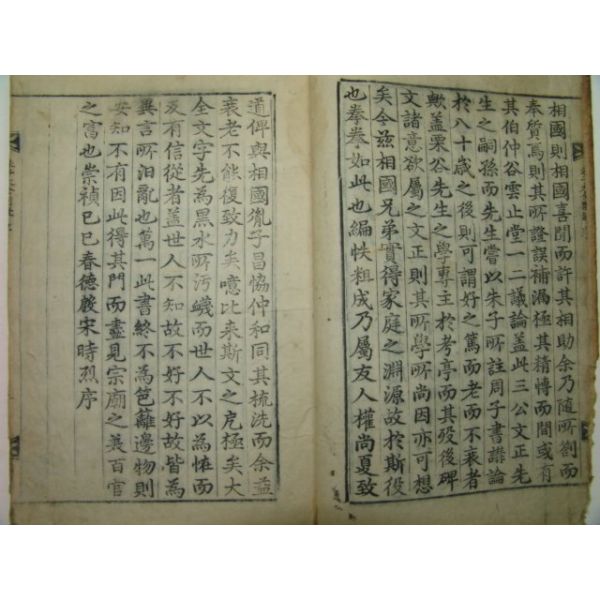 相國則相國喜聞而許其相助余乃隨所劄而
奉質焉則其所證誤補漏極其精博而間或有
其伯仲谷雲止堂一二議論蓋此三公文正先
生之嗣孫而先生嘗以朱子所註周子書講論
於八十歲之後則可謂好之篤而老而不衰者
歟蓋栗谷先生之學專主於考亭而其歿後碑
文諸意欲屬之文正則其所學所尚因亦可想
矣今玆相國兄弟實得家庭之淵源故於斯役
也拳拳如此也編帙粗成乃屬友人權尚夏致
道俾與相國胤子昌協仲和同其梳洗而余益
衰老不能復致力矣噫比来斯文之厄極矣大
全文字先為黑水所污衊而世人不以為恠而
反有信從者蓋世人不知故不好不好故皆為
異言所汨亂也萬一此書終不為笆籬邊物則
安知不有因此得其門而盡見宗廟之美百官
之富也崇禎己巳春德殷宋時烈序